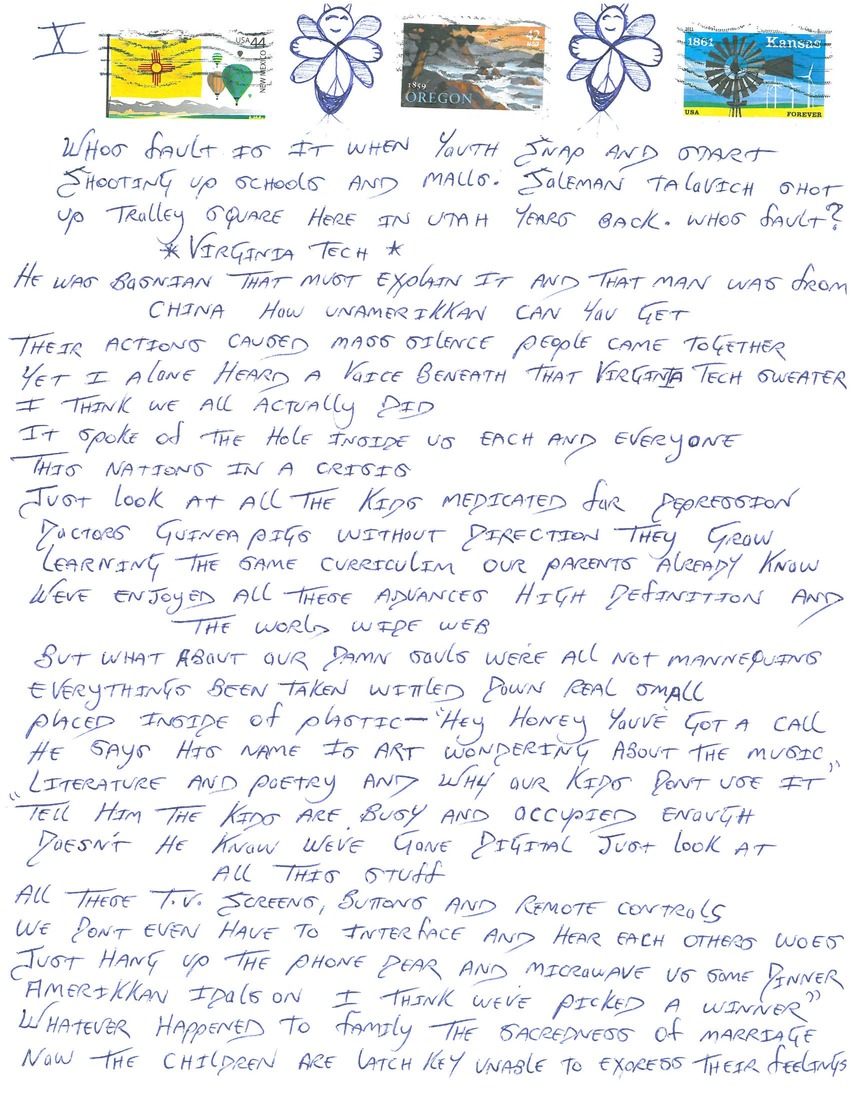 X
USA 44
NEW MEXICO
42
USA
1859
OREGON
1861
Kansas
USA FOREVER
WHOS fAULT IS IT WHEN YOUTH SNAP AND START
SHOOTING UP SCHOOLS AND MALLS. SOLEMAN TALOVICH SHOT
UP TROLLEY SQUARE HERE IN UTAH YEARS BACK. WHOS fAULT?
* VIRGINIA TECH *
HE WAS BOSNIAN THAT MUST EXPLAIN IT AND THAT MAN WAS fROM
CHINA HOW UNAMERIKKAN CAN YOU GET
THEIR ACTIONS CAUSED MASS SILENCE PEOPLE CAME TOGETHER
YET I ALONE HEARD A VOICE BENEATH THAT VIRGINIA TECH SWEATER
I THINK WE ALL ACTUALLY DID
IT SPOKE Of THE HOLE INSIDE US EACH AND EVERYONE
THIS NATIONS IN A CRISIS
JUST LOOK AT ALL THE KIDS MEDICATED fOR DEPRESSION
DOCTORS GUINEA PIGS WITHOUT DIRECTION THEY GROW
LEARNING THE SAME CURRICULIM OUR PARENTS ALREADY KNOW
WE'VE ENJOYED ALL THESE ADVANCES HIGH DEfINITION AND
THE WORLD WIDE WEB
BUT WHAT ABOUT OUR DAMN SOULS WE'RE ALL NOT MANNEQUINS
EVERYTHINGS BEEN TAKEN WITTLED DOWN REAL SMALL
PLACED INSIDE Of PLASTIC—"HEY HONEY YOU'VE GOT A CALL
HE SAYS HIS NAME IS ART WONDERING ABOUT THE MUSIC,
"LITERATURE AND POETRY AND WHY OUR KIDS DON'T USE IT"
TELL HIM THE KIDS ARE BUSY AND OCCUPIED ENOUGH
DOESN'T HE KNOW WE'VE GONE DIGITAL JUST LOOK AT
ALL THIS STUff
ALL THESE T.V. SCREENS, BUTTONS AND REMOTE CONTROLS
WE DON'T EVEN HAVE TO INTERfACE AND HEAR EACH OTHERS WOES
JUST HANG UP THE PHONE DEAR AND MICROWAVE US SOME DINNER
AMERIKKAN IDOLS ON I THINK WE'VE PICKED A WINNER"
WHATEVER HAPPENED TO fAMILY THE SACREDNESS Of MARRIAGE
NOW THE CHILDREN ARE LATCH KEY UNABLE TO EXPRESS THEIR fEELINGS